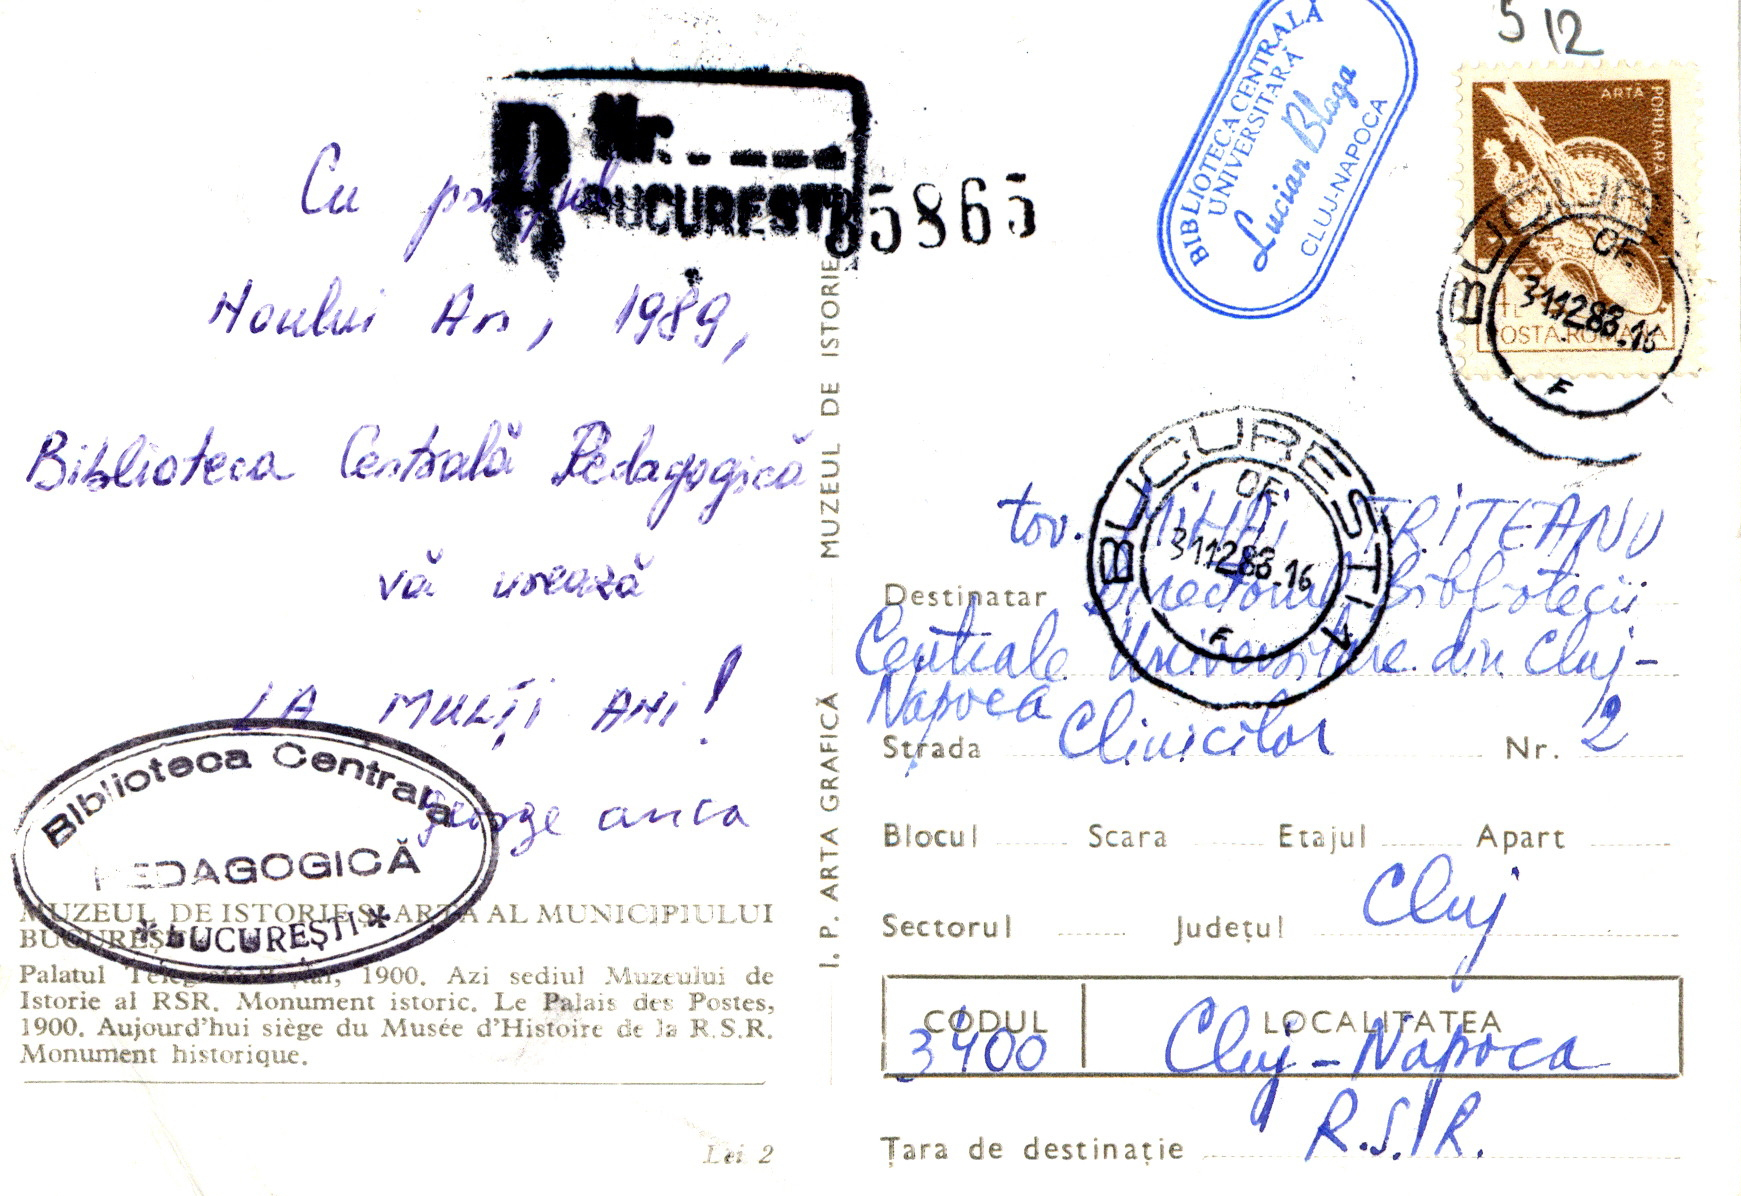 5 12
R Nr.
BUCUREȘTI 35865
BIBLIOTECA CENTRALĂ
UNIVERSITARĂ
Lucian Blaga
CLUJ-NAPOCA
ARTA POPULARA
POSTA ROMANA
BUCURESTI
OF.
311288.16
F
Cu prilejul
Noului An, 1989,
Biblioteca Centrală Pedagogică
vă urează
LA MULȚI ANI!
george anca
Biblioteca Centrala
PEDAGOGICĂ
* BUCUREȘTI *
MUZEUL DE ISTORIE ȘI ARTĂ AL MUNICIPIULUI
BUCUREȘTI
Palatul 1900. Azi sediul Muzeului de
Istorie al RSR. Monument istoric. Le Palais des Postes,
1900. Aujourd'hui siège du Musée d'Histoire de la R.S.R.
Monument historique.
Lei 2
I. P. ARTA GRAFICĂ MUZEUL DE ISTORIE
BUCURESTI 1
OF.
311288.16
F
tov. MIHAI TRITEANU
Destinatar Directorul Bibliotecii
Centrale Universitare din Cluj-
Napoca
Strada Clinicilor Nr. 2
Blocul Scara Etajul Apart
Sectorul Județul Cluj
CODUL LOCALITATEA
3400 Cluj-Napoca
Țara de destinație R.S.R.